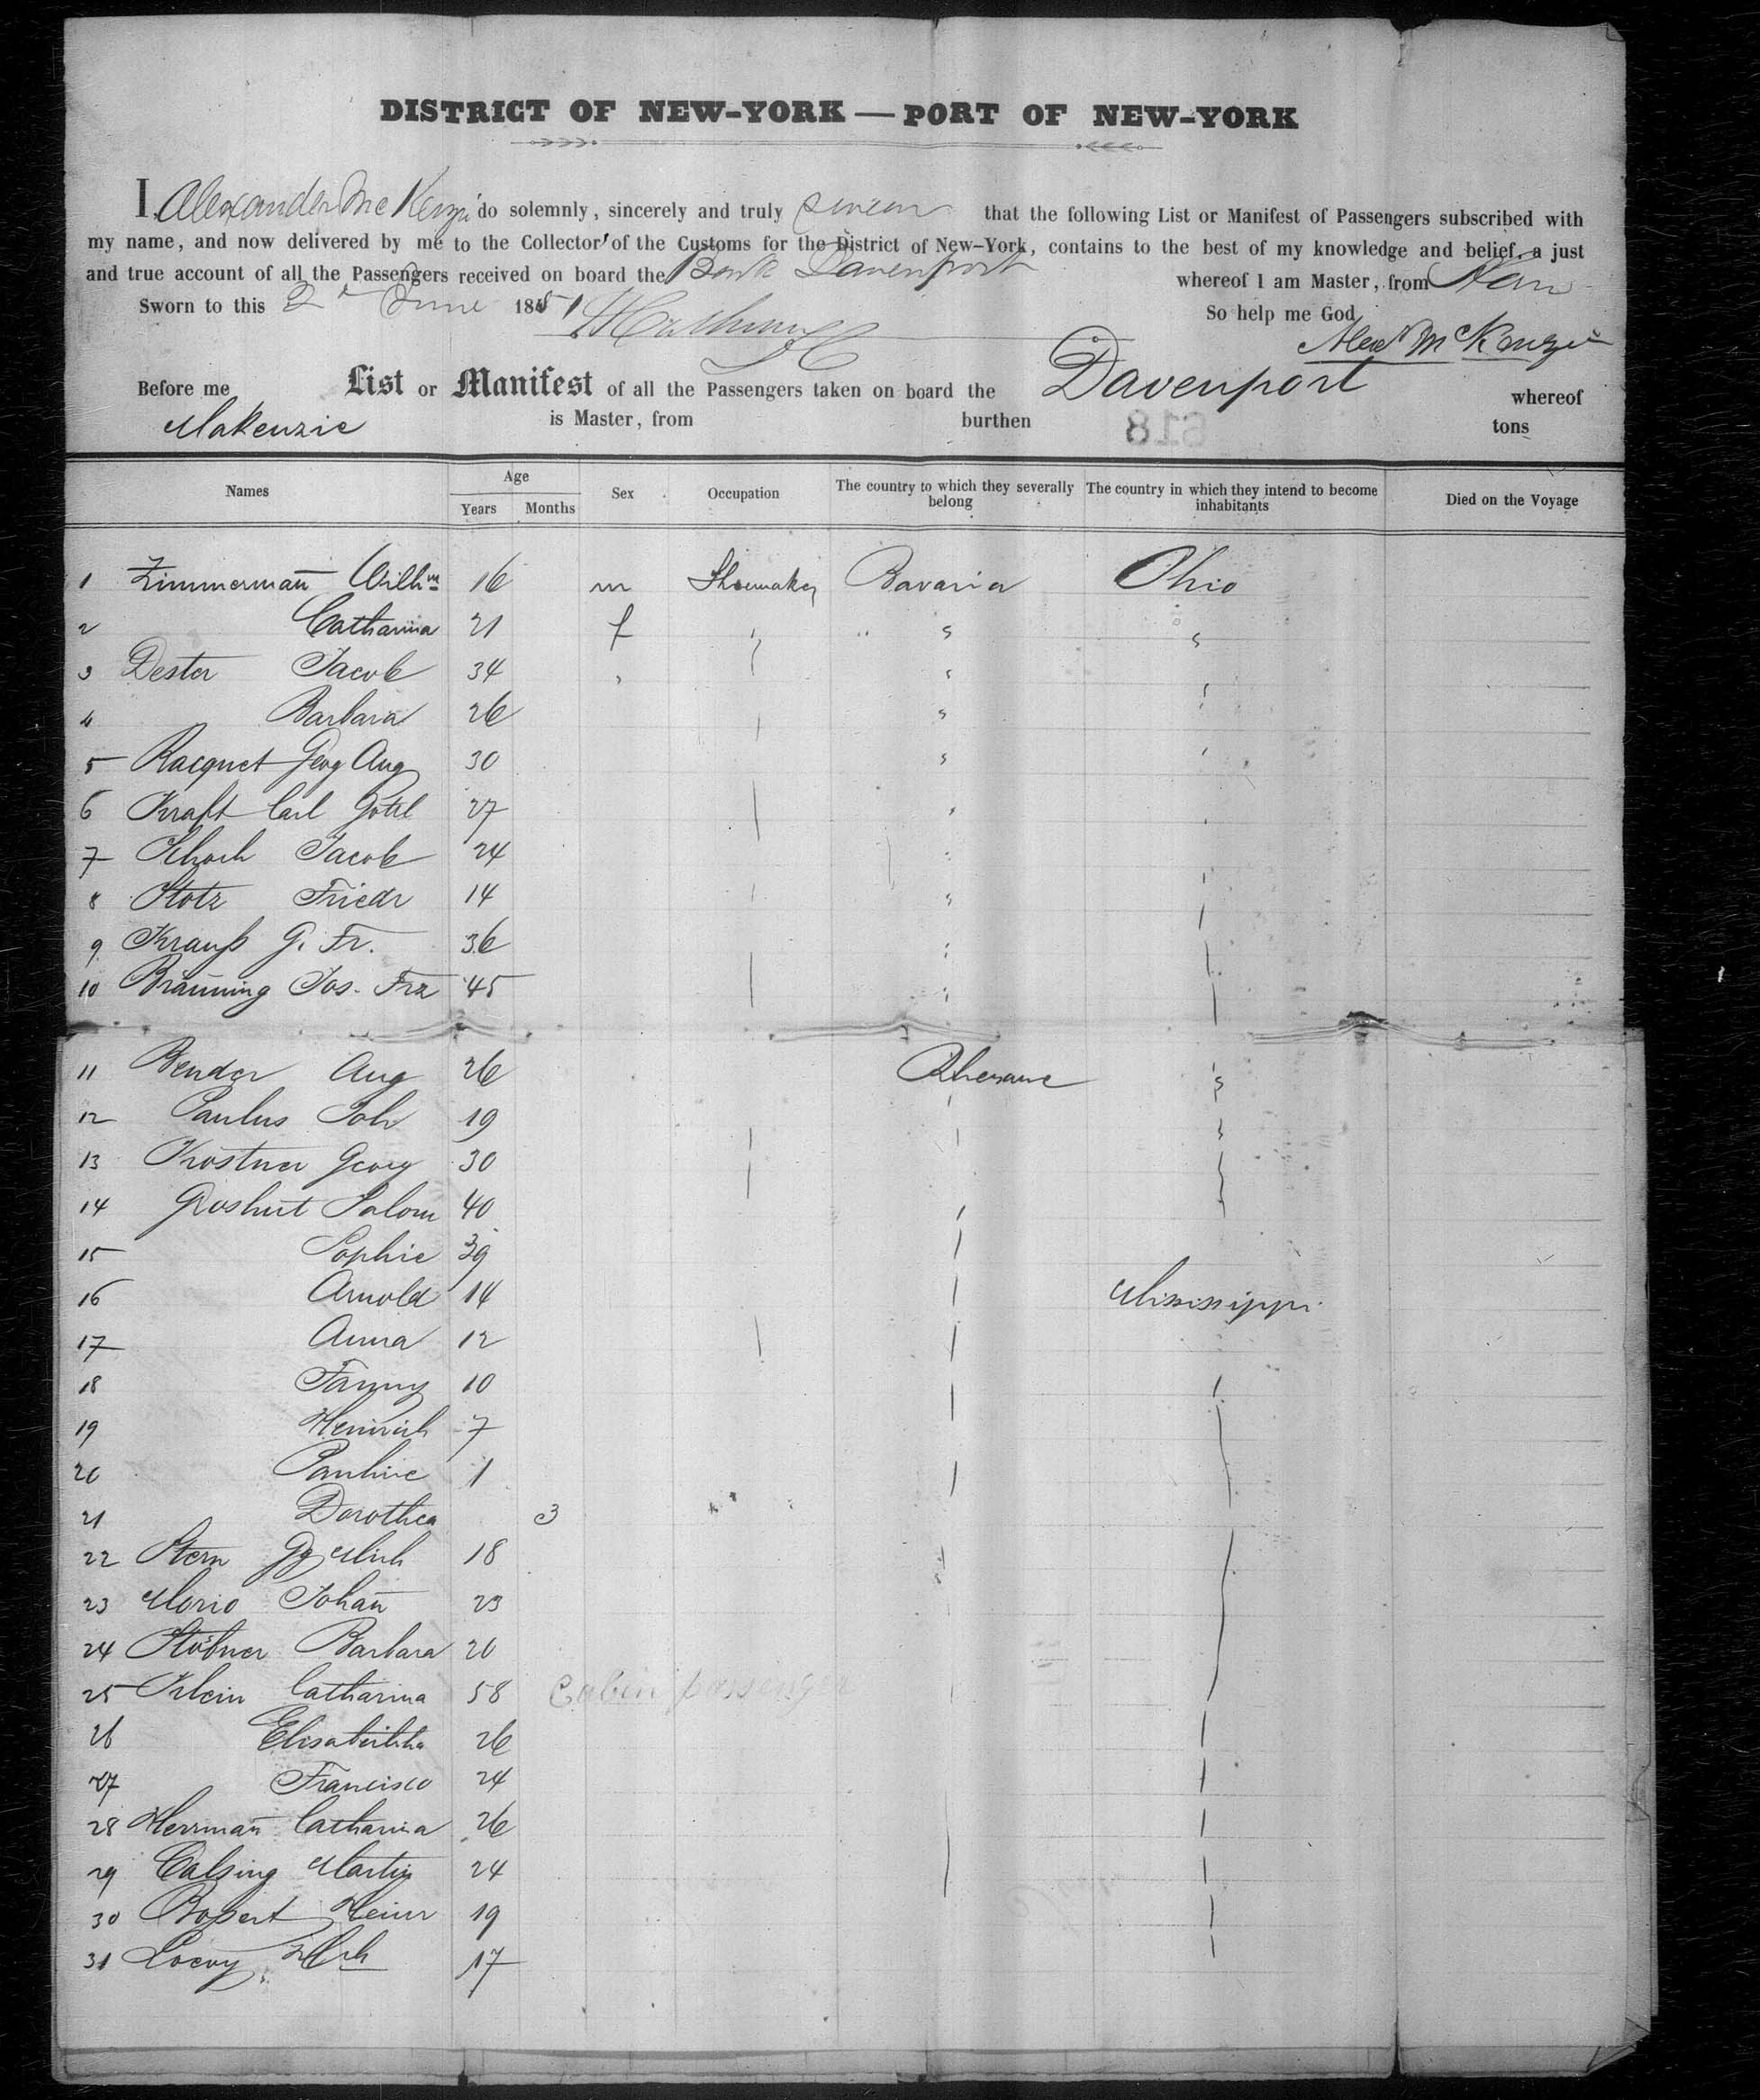 DISTRICT OF NEW-YORK — PORT OF NEW-YORK
I, Alexander McKenzie do solemnly, sincerely and truly swear that the following List or Manifest of Passengers subscribed with
my name, and now delivered by me to the Collector of the Customs for the District of New-York, contains to the best of my knowledge and belief, a just
and true account of all the Passengers received on board the Bark Davenport whereof I am Master, from
Sworn to this 2d June 1851 So help me God
Alexr McKenzie
Before me List or Manifest of all the Passengers taken on board the Davenport whereof
Makenzie is Master, from burthen tons
618
Names Age Years Months Sex Occupation The country to which they severally belong The country in which they intend to become inhabitants Died on the Voyage
1 Zimmermañ Wilhm 16 m Shoemaker Bavaria Ohio
2 Catharina 21 f
3 Dester Jacob 34
4 Barbara 26
5 Racquet Georg Aug 30
6 Kraft Carl Gottl 27
7 Schoch Jacob 24
8 Stotz Friedr 14
9 Krauß G. Fr. 36
10 Bräuning Jos. Frz 45
11 Bender Aug 26
12 Paulus Joh 19
13 Kostner Georg 30
14 Groshut Salom 40
15 Sophie 39
16 Arnold 14 Missisippi
17 Anna 12
18 Fanny 10
19 Heinrich 7
20 Pauline 1
21 Dorothea 3
22 Stern Gg Mich 18
23 Morio Johañ 23
24 Stößner Barbara 20
25 Klein Catharina 58 Cabin passenger
26 Elisabetha 26
27 Francisco 24
28 Herrmañ Catharina 26
29 Martin 24
30 Heinr 19
31 17